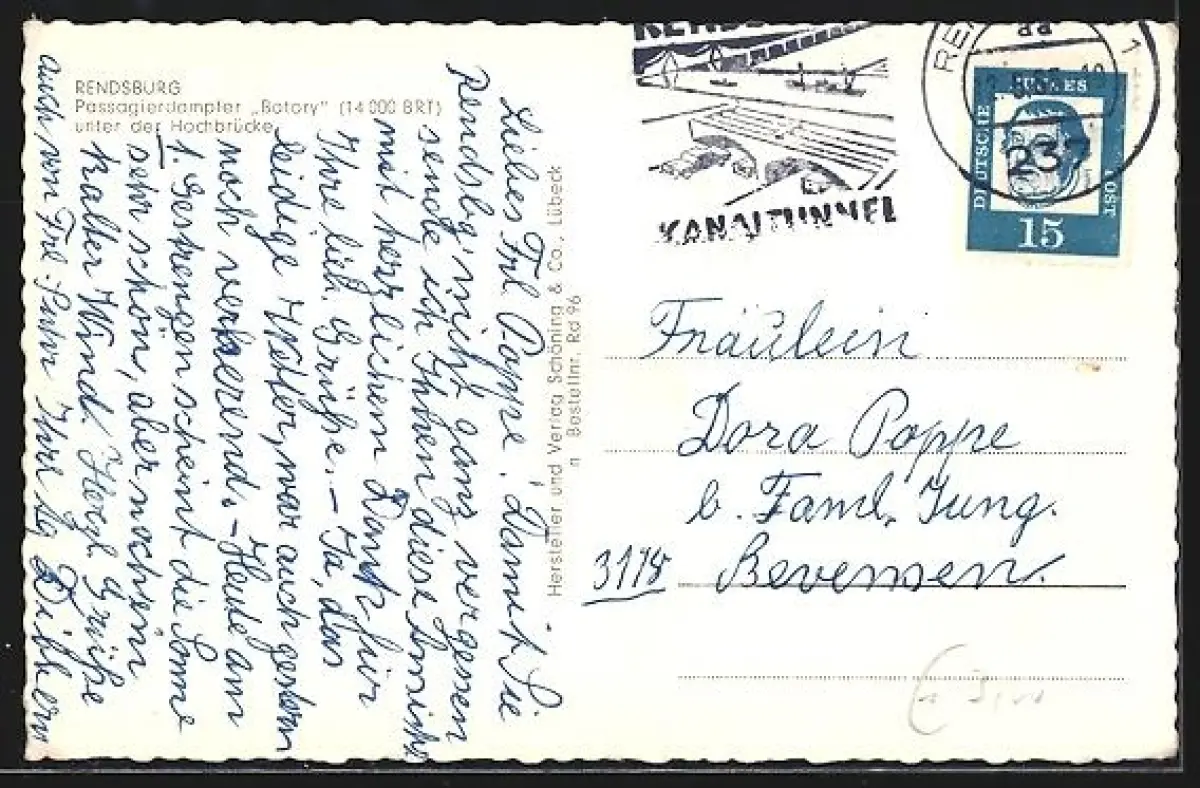 RENDSBURG
Passagierdampfer „Batory" (14 000 BRT)
unter der Hochbrücke
Liebes Frl. Poppe! Damit Sie
Rendsbg. nicht ganz vergessen
sende ich Ihnen diese Ansicht
mit herzlichem Dank für
Ihre lieb. Grüße. – Ja, das
leidige Wetter, war auch gestern
noch verheerend. – Heute am
1. Gestrengen scheint die Sonne
sehr schön, aber noch ein
kalter Wind. Herzl. Grüße
auch von Frl. Ihre
Hersteller und Verlag Schöning & Co., Lübeck
n Bestellnr. Rd 96
KANALTUNNEL
237
DEUTSCHE
BUNDES
POST
15
Fräulein
Dora Poppe
b. Faml. Jung.
3118 Bevensen.